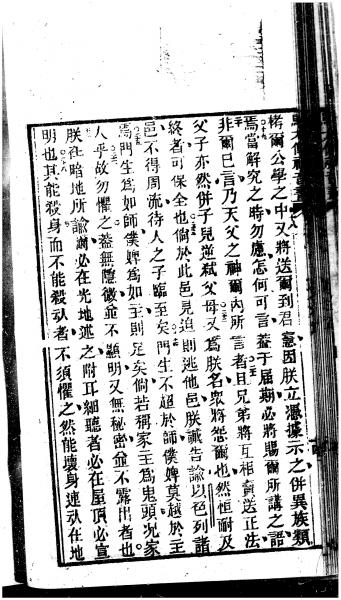 楛爾公學之中又將送爾到君憲因朕立憑據示之併異族類
焉當解究之時勿應怎何可言蓋于屆期必將賜爾所講之語
非爾已言乃天父之神爾內所言者且兄弟將互相賣送正法
父子亦然併子兒逆弒父母又爲朕名衆將怨爾也然恒耐及
終者可保全也倘於此邑見迫則逃他邑朕讖告諭以色列諸
邑不得周流待人之子臨至矣門生不超於師僕婢莫越於主
焉門生爲如師僕婢爲如主則足矣倘若稱家主爲鬼頭況家
人乎故勿懼之蓋無隱微並不顯明又無秘密並不露出者也
朕在暗地所諭爾必在光地述之附耳細聽者必在屋頂必宣
明也其能殺身而不能殺㚑者不須懼之然能壞身連㚑在地